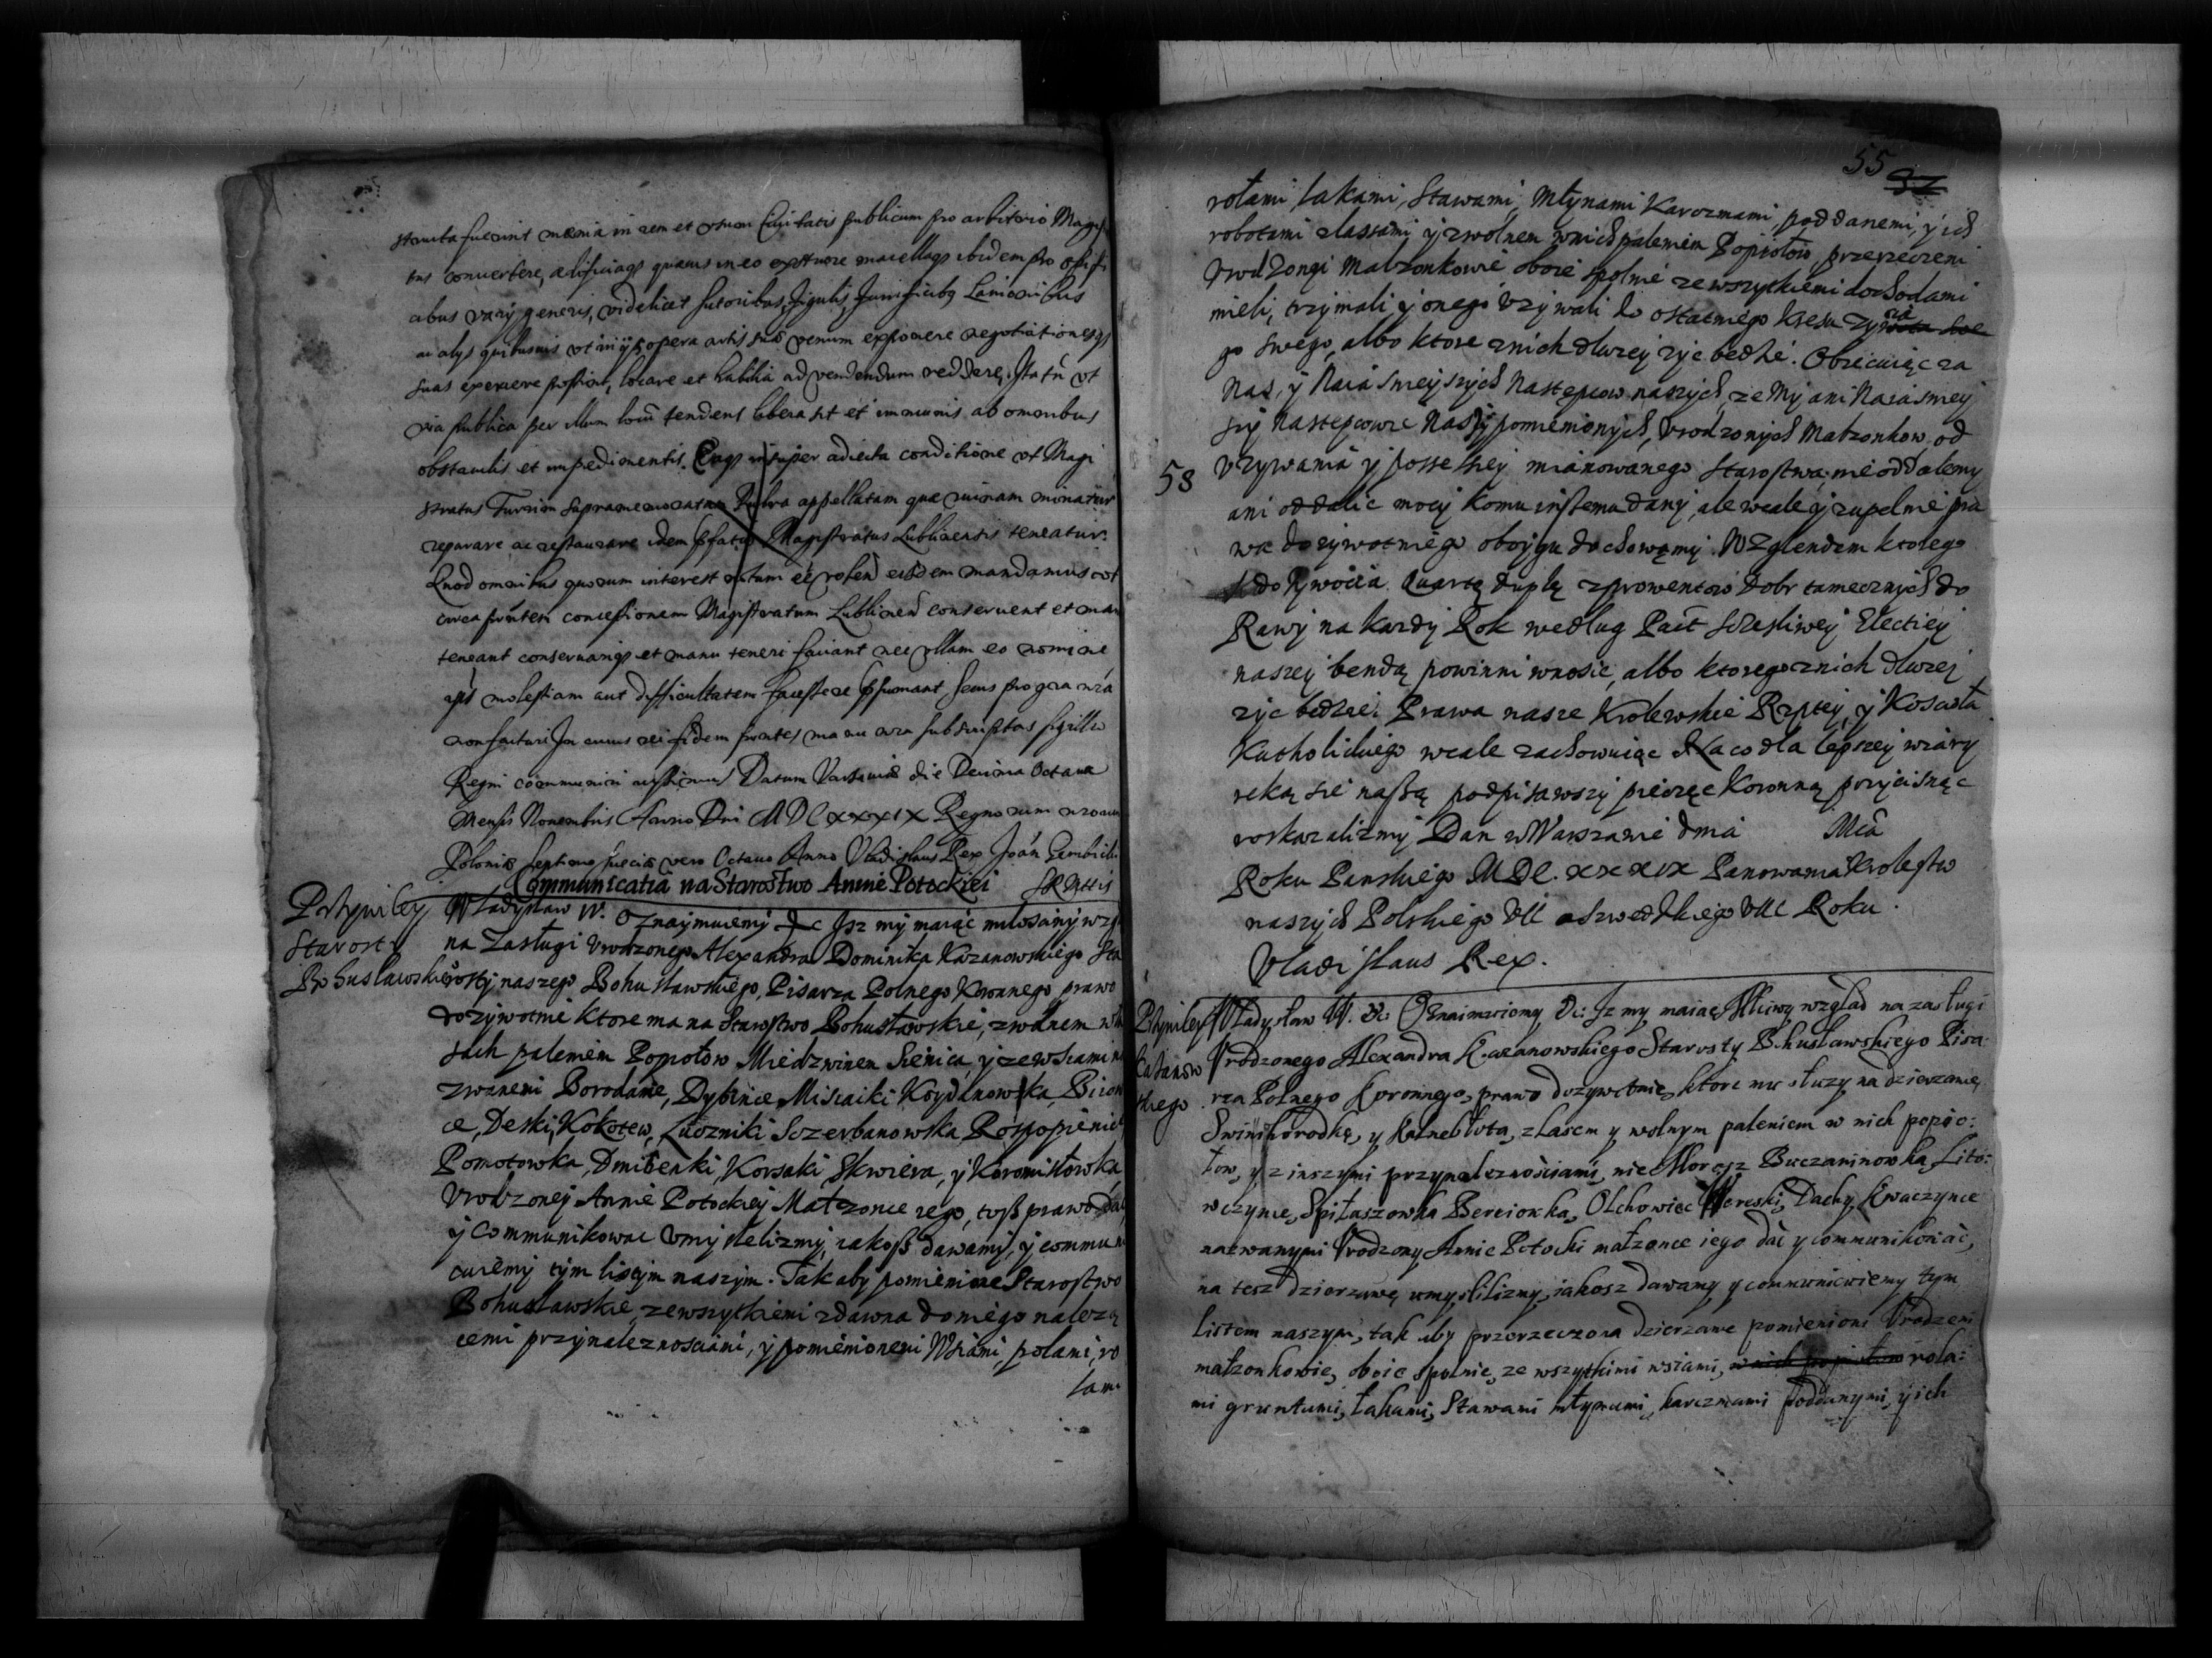 structa fuerint mœnia in rem et usum Civitatis publicum pro arbitrio Magis
tus convertere, ædificiaq quævis in eo exstruere macellaq ibidem pro opifi
cibus varij generis, videlicet sutoribus, figulis, Lanionibus
ac alys quibusvis opera artis suæ venum exponere negotiationesq
suas exercere possint, locare et habilia ad vendendum reddere. Ita tn ut
via publica per illum locū tendens libera sit et immunis ab omnibus
obstaculis et impedimentis. Eaq insuper adiecta conditione ut Magi
stratus Turrim supramemoratam appellatam quæ ruinam minatur
reparare ac restaurare idem Magistratus Lublinensis teneatur.
Quod omnibus quorum interest notum eisdem mandamus ut
circa concessionem Magistratum Lublinen conservent et man
teneant conservariq et manu teneri faciant nec ullam eo nomine
molestiam aut difficultatem facessere secus pro gra nra
non facturi In cuius rei fidem pntes manu nra subscriptas sigillo
Regni communiri iussimus Datum Varsaviæ die Decima Octava
Mensis Novembris Anno Dni MDCXXXIX Regnorum nrorum
Poloniæ Septimo Sueciæ vero Octavo Anno Vladislaus Rex Joān Gembicki
Communicatia na Starostwo Annie Potockiei SRMttis
Przywiley
Starosty
Bohuslawskie
Władysław IV. Oznaymuiemy &c Jsz my maiąc miłościwy wzgl
na Zasługi Vrodzonego Alexandra Dominika Kazanowskiego Sta
rosty naszego Bohusławskiego, Pisarza Polnego Koronnego prawo
dożywotnie ktore ma na Starostwo Bohusławskie, zwolnem w
sach paleniem Popiołow Miedzwinem Sienica, y zewsiami na
zwanemi Borodanie, Dybince Misiaiki Koydanowska, Bieion
ce, Deski, Kokotew, Łuczniki Sczerbanowska Rospopienice
Pomotowka, Dmitenki, Korsaki Skwiera, y Koromisłowka
Vrodzoney Annie Potockiey Małzonce iego, tosz prawo dać
y Communikowac Vmyslelizmy, iakosz dawamy, y commu
cuiemy tym listym naszym. Tak aby pomienione Starostwo
Bohusławskie, zewszytkiemi zdawna do niego należą
cemi przynaleznosciami, y pomienionemi Wsiami, polami, ro
lami
55 52
rołami łakami, Stawami, Młynami Karczmami, poddanemi, y ich
robotami zlassami y zwolnem wnich paleniem Popiołow przerzeczeni
Vrodzongi Małzonkowie oboie spolnie zewszytkiemi dochodami
mieli, trzymali, y onego Vzywali do ostatniego kresu zycia
go swego, albo ktore znich dłuzey zyc bedzie. Obiecuiąc za
Nas, y Naiasnieyszych Nastepcow naszych, ze My ani Naiasniey
szy Nastepcowie Naszy pomienionych, Vrodzonych Małzonkow od
58
vzywania y possessiey mianowanego Starostwa nie oddalemy
ani oddalic mocy komu inszemu damy, ale wcale y zupelnie pra
wa dozywotniego oboygu dochowamy. Wzglendem ktorego
dożywocia Quartę duplę zprowentow Dobr tamecznych do
Rawy na kazdy Rok według Pact sczesliwey Electiey
naszey bendą powinni wnosic, albo ktorego znich dłuzey
zyc bedzie. Prawa nasze Krolewskie Rzptey, y Koscioła
Katholickiego wcale zachowuiąc Na co dla lepszey wiary
reką się naszą podpisawszy pieczęc Koronną przycisnąc
roskazalizmy Dan w Warszawie dnia Mca
Roku Panskiego MDC.XXXIX Panowania Krolestw
naszych Polskiego VII a Szwedzkiego VIII Roku.
Vladislaus Rex.
Przywiley
Kazanow
skiego
Władysław IV. &c Oznaimuiemy &c: Jz my maiąc Młciwy wzgląd na zasługi
Vrodzonego Alexandra Kazanowskiego Starosty Bohusławskiego Pisa:
rza Polnego Koronnego, prawo dozywotnie, ktore mu słuzy na dzierzawę
Swinihorodkę, y Kalnebłota, z lasem y wolnym paleniem w nich popio:
łow, y z inszymi przynaleznościami, nie Moresz Buczaninowka Lito:
wczynce, Spitaszowka Bereiowka, Olchowiec Hereski, Dachy, Kwaczynce
nazwanymi Vrodzony Annie Potocki małzonce iego dać y communikować,
na tesz dzierzawę umyslilizmy, iakosz dawamy y communicuiemy tym
listem naszym, tak aby przerzeczona dzierzawe pomienioni Vrodzeni
małzonkowie, oboie spolnie, ze wszytkimi wsiami, rola:
mi gruntami, łakami, Stawami młynami, karczmami poddanymi, y ich